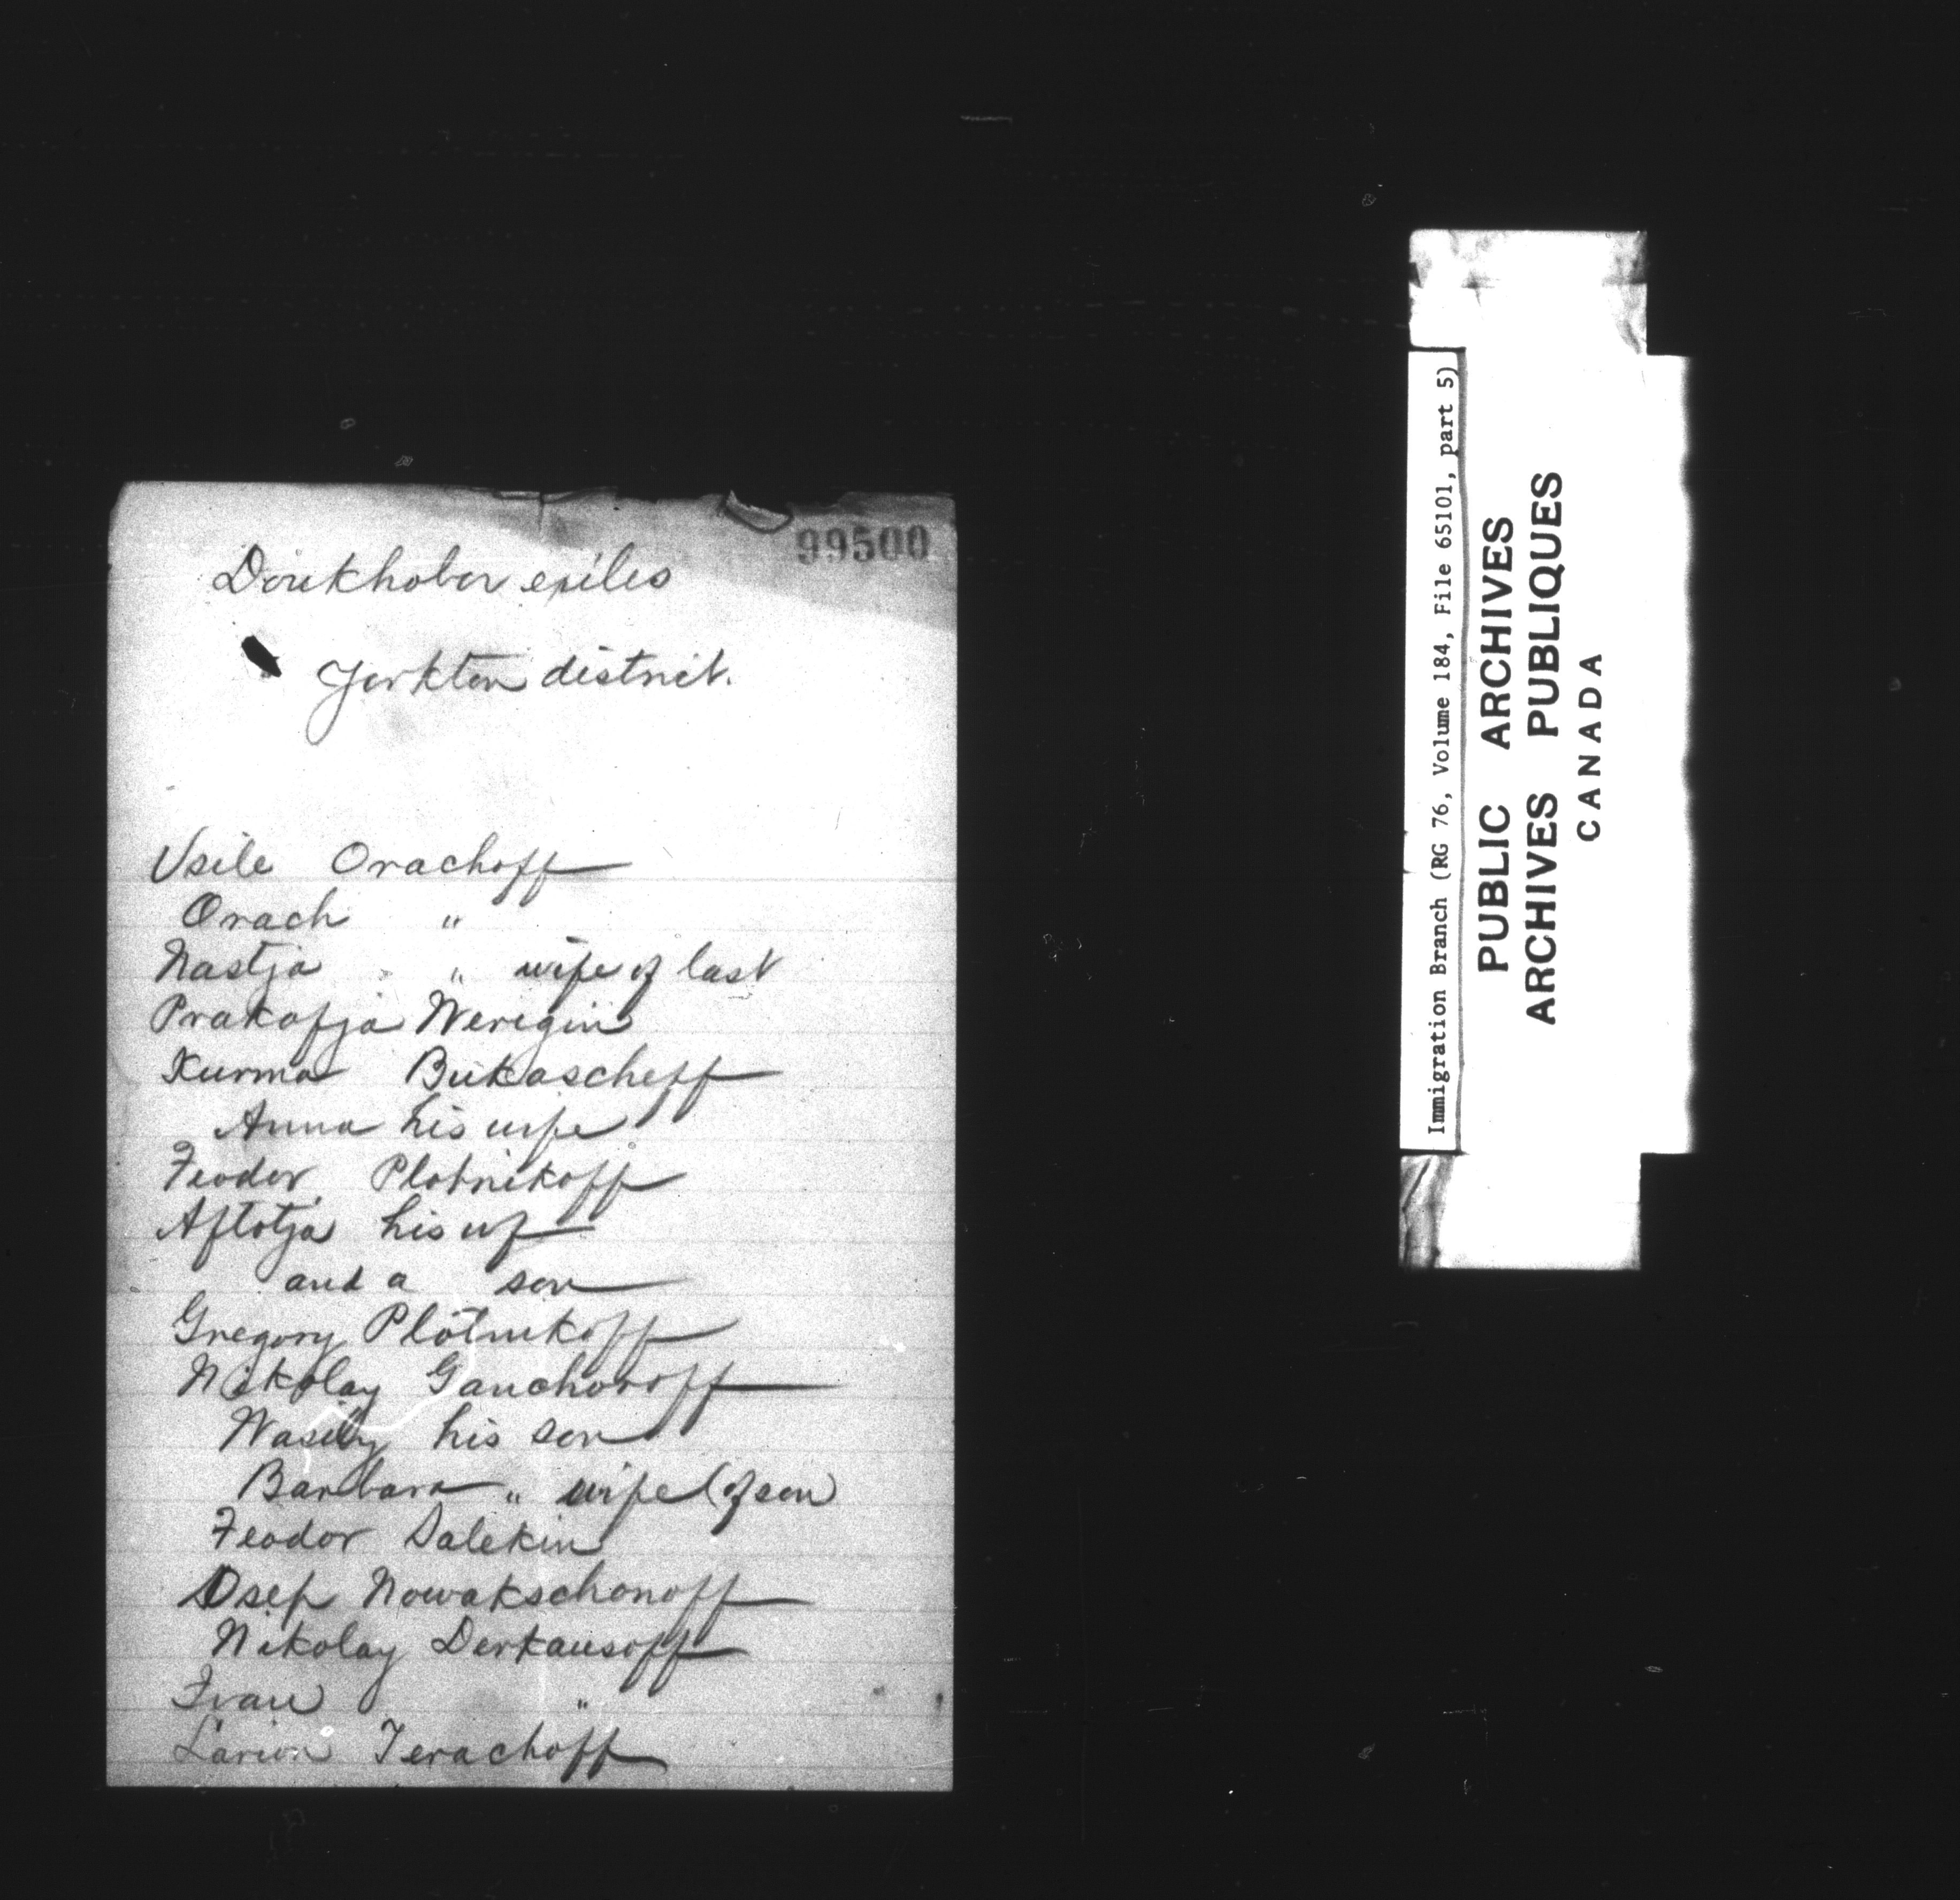 99500
Doukhobor exiles
Yorkton district.
Vsile Orachoff
Orach "
Nastja " wife of last
Prakofja Werigin
Kurma Bukascheff
Anna his wife
Feodor Plotnikoff
Aftotja his wf
and a son
Gregory Plotnikoff
Nikolay Gauchoroff
Wasily his son
Barbara " wife (of son)
Feodor Dalekin
Osep Nowakschonoff
Nikolay Derkausoff
Ivan "
Larion Terachoff
Immigration Branch (RG 76, Volume 184, File 65101, part 5)
PUBLIC ARCHIVES
ARCHIVES PUBLIQUES
CANADA